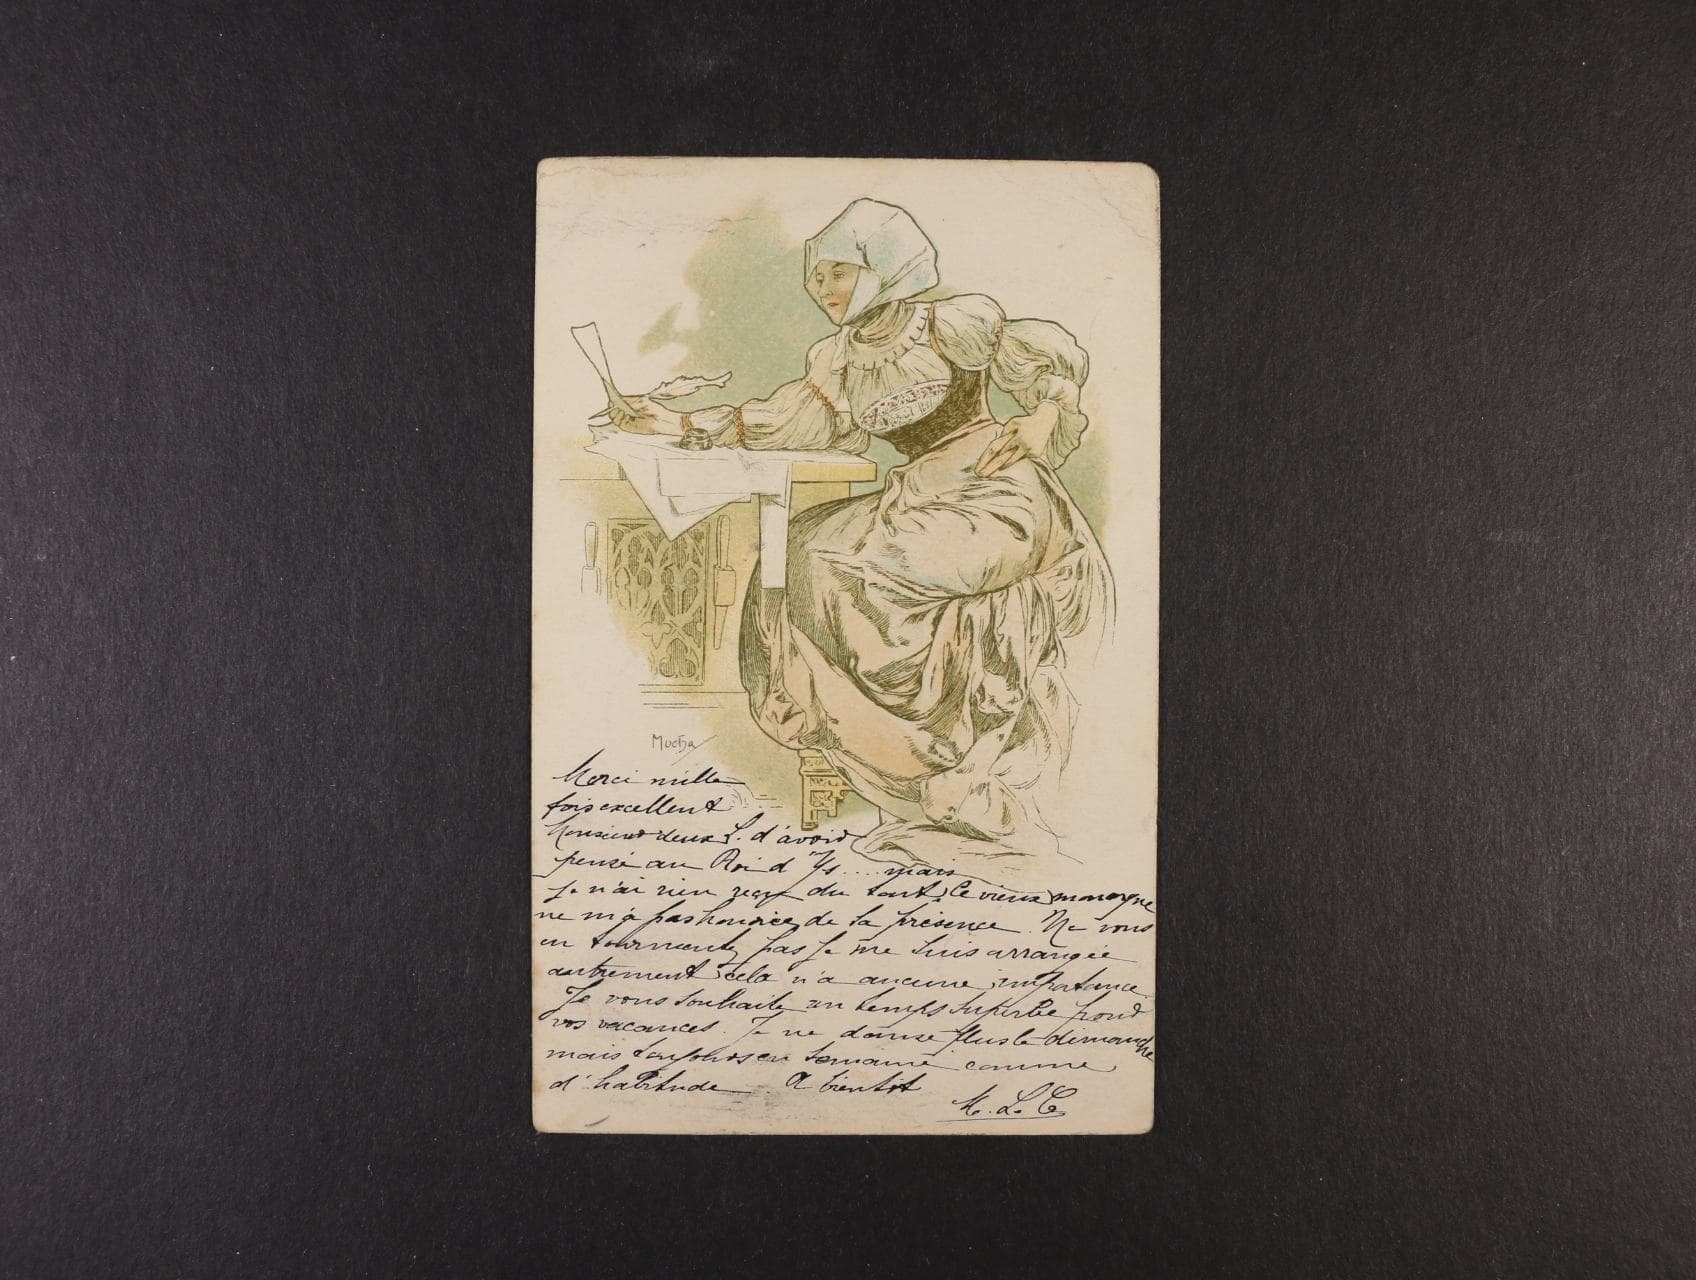 Mucha
Merci mille
fois excellent
Monsieur deux L. d'avoir
pensé au Roi d'Ys .... mais
je n'ai rien reçu du tout, Ce vieux
ne m'a pas honorée de sa présence. Ne vous
en tourmentez pas je me suis arrangée
autrement, cela n'a aucune importance.
Je vous souhaite un temps superbe pour
vos vacances. Je ne danse plus le dimanche
mais toujours en semaine comme
d'habitude. A bientôt
M. L. C